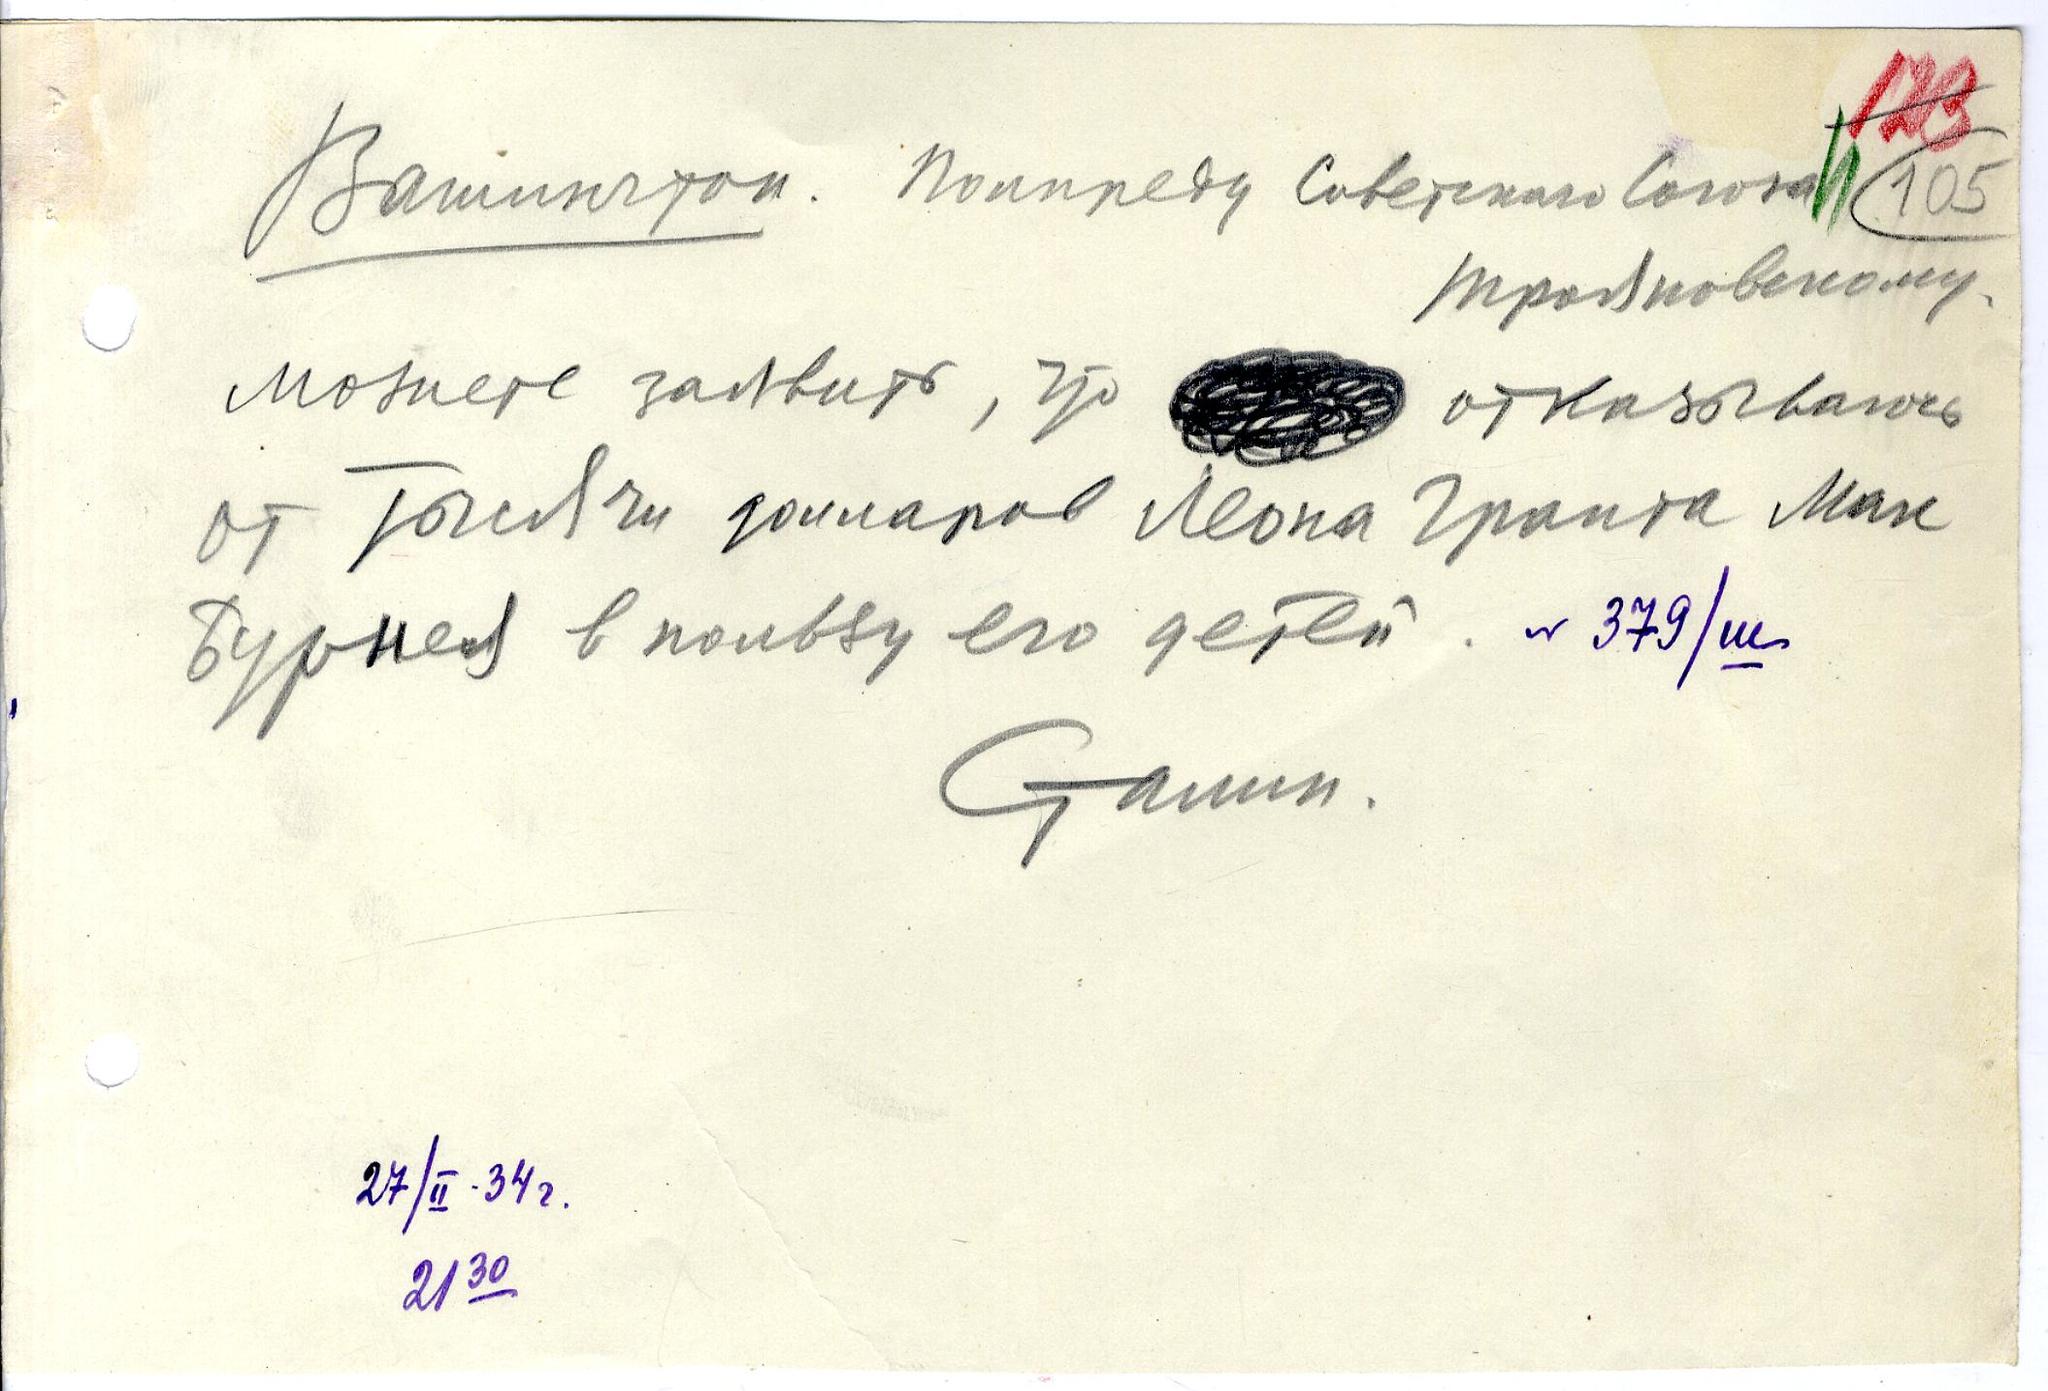 123
105
Вашингтон. Полпреду Советского Союза
Трояновскому.
Можете заявить, что отказываюсь
от тысячи долларов Леона Гранта Мак
Бурнея в пользу его детей. № 379/ш
Сталин.
27/II-34 г.
21 30